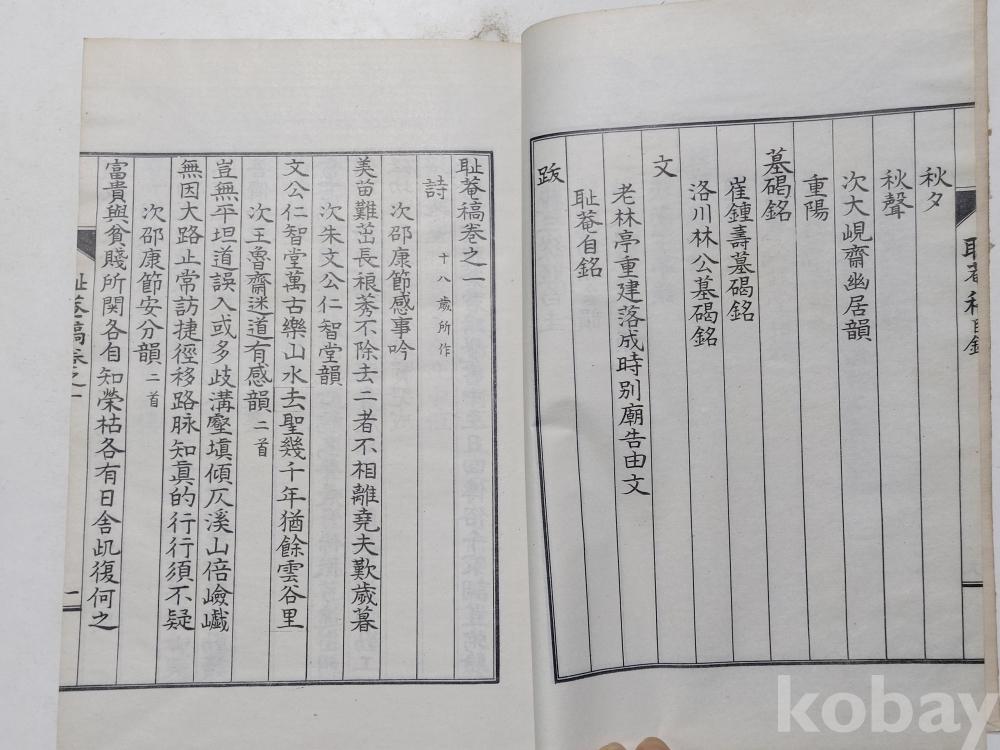 秋夕
秋聲
次大峴齋幽居韻
重陽
墓碣銘
崔鍾壽墓碣銘
洛川林公墓碣銘
文
老林亭重建落成時別廟告由文
耻菴自銘
跋
耻菴稿卷之一
詩 十八歲所作
次邵康節感事吟
美苗難茁長稂莠不除去二者不相離堯夫歎歲暮
次朱文公仁智堂韻
文公仁智堂萬古樂山水去聖幾千年猶餘雲谷里
次王魯齋迷道有感韻 二首
豈無平坦道誤入或多歧溝壑塡傾仄溪山倍嶮巇
無因大路止常訪捷徑移路脉知眞的行行須不疑
次邵康節安分韻 二首
富貴與貧賤所関各自知榮枯各有日舍此復何之
耻菴稿卷之一
一
kobay